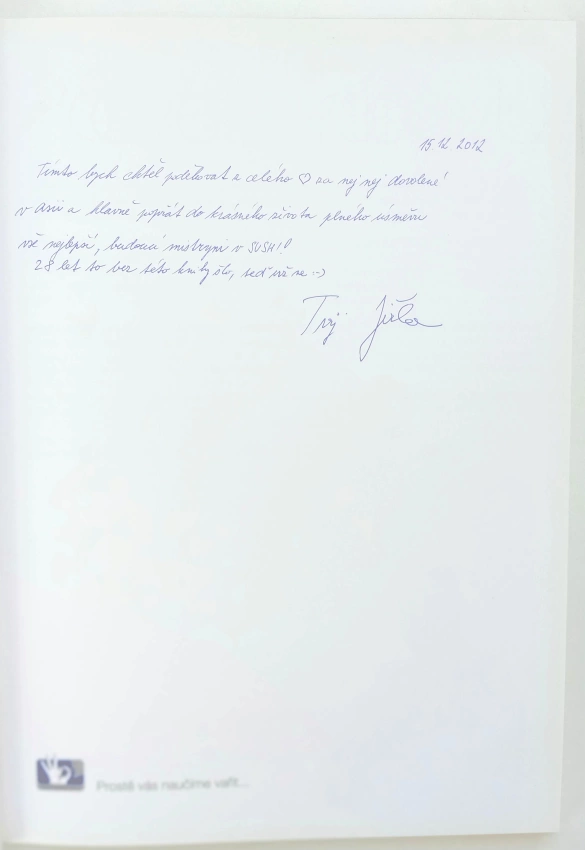 15 12 2012
Tímto bych chtěl poděkovat z celého ♡ za nej nej dovolené
v Asii a hlavně popřát do krásného života plného úsměvu
vše nejlepší, budoucí mistryni v SUSHI!
28 let to bez této knihy šlo, teď už ne :-)
Tvůj
Prostě vás naučíme vařit...